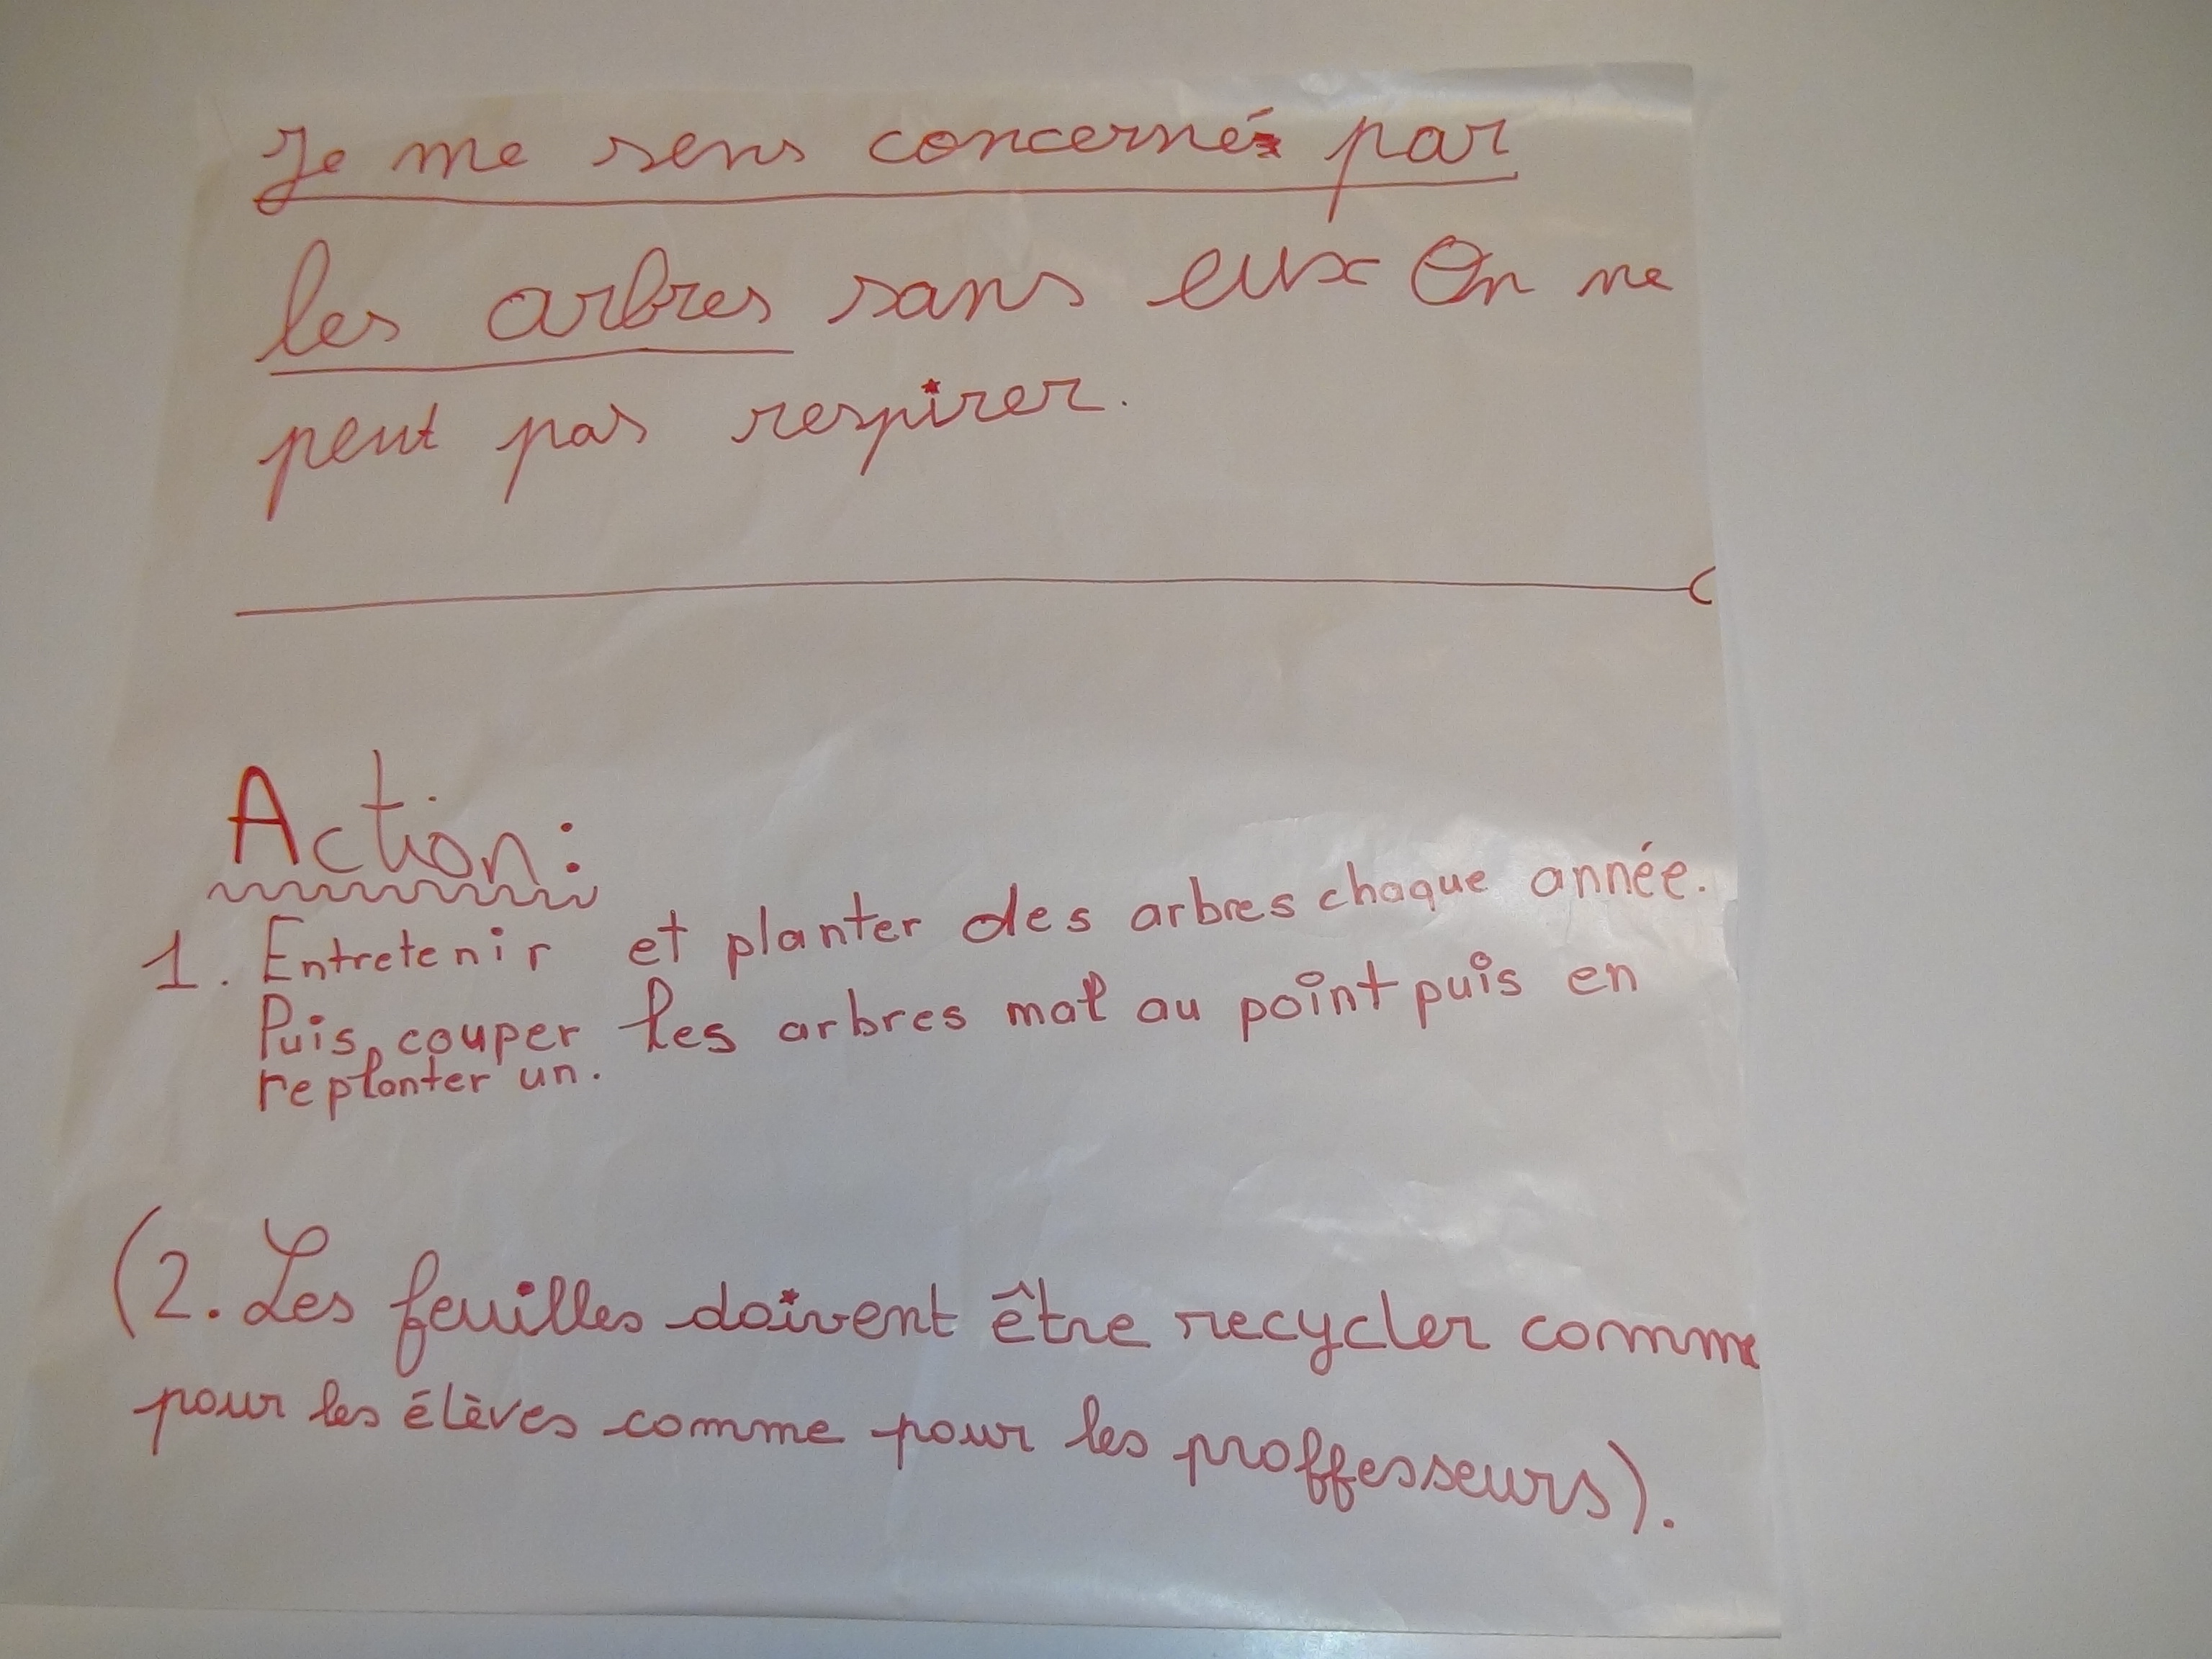 Je me sens concerné par
les arbres sans eux On ne
peut pas respirer.
Action:
1. Entretenir et planter des arbres chaque année.
Puis, couper les arbres mal au point puis en
replanter un.
(2. Les feuilles doivent être recycler comme
pour les élèves comme pour les proffesseurs).